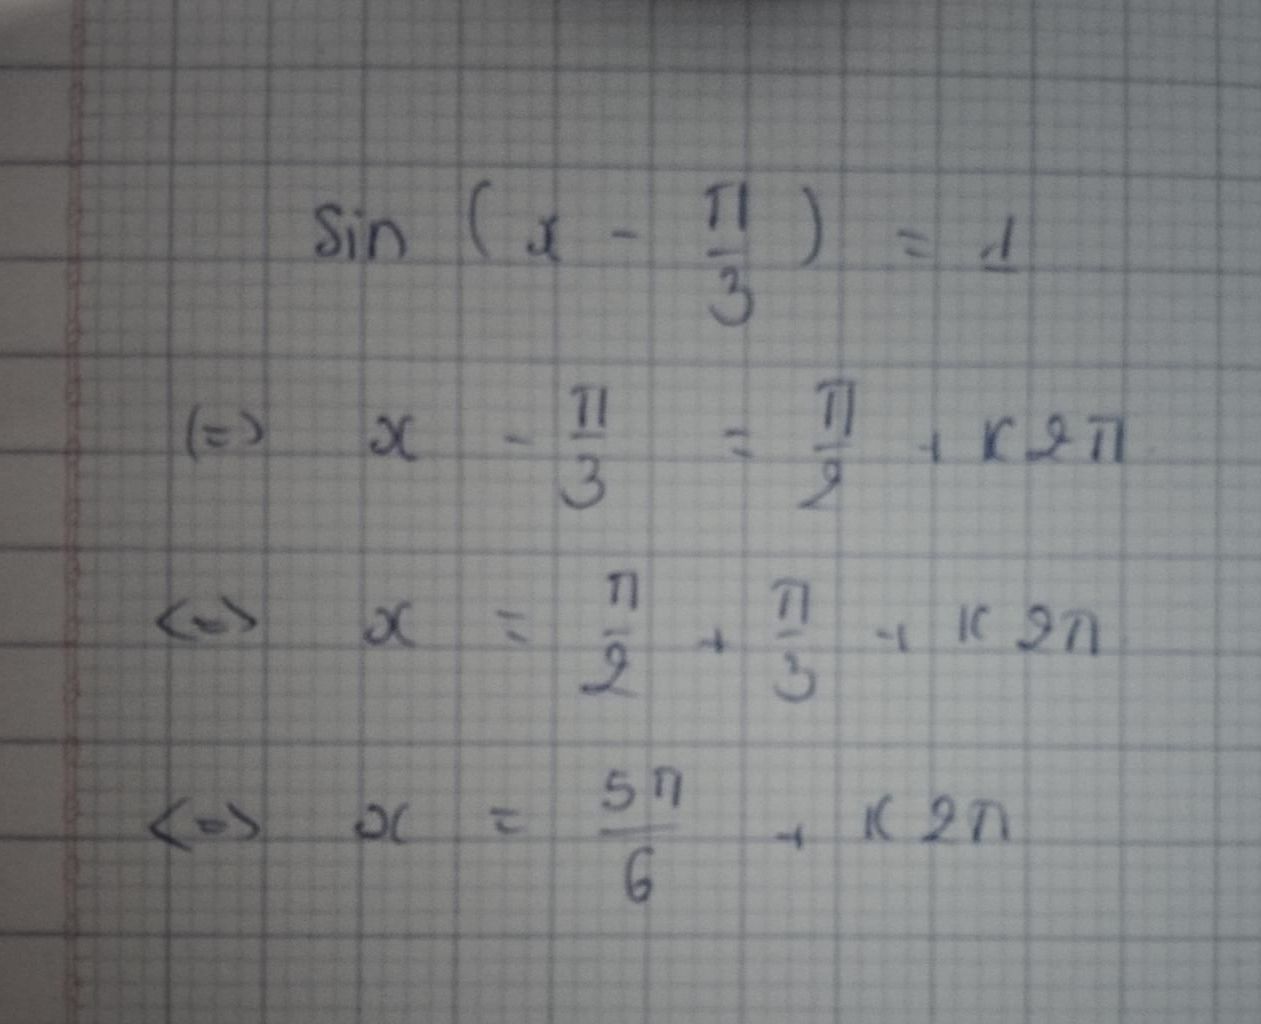 sin ( x - π/3 ) = 1
(=) x - π/3 = π/2 + K2π
<=> x = π/2 + π/3 + K2π
<=> x = 5π/6 + K2π